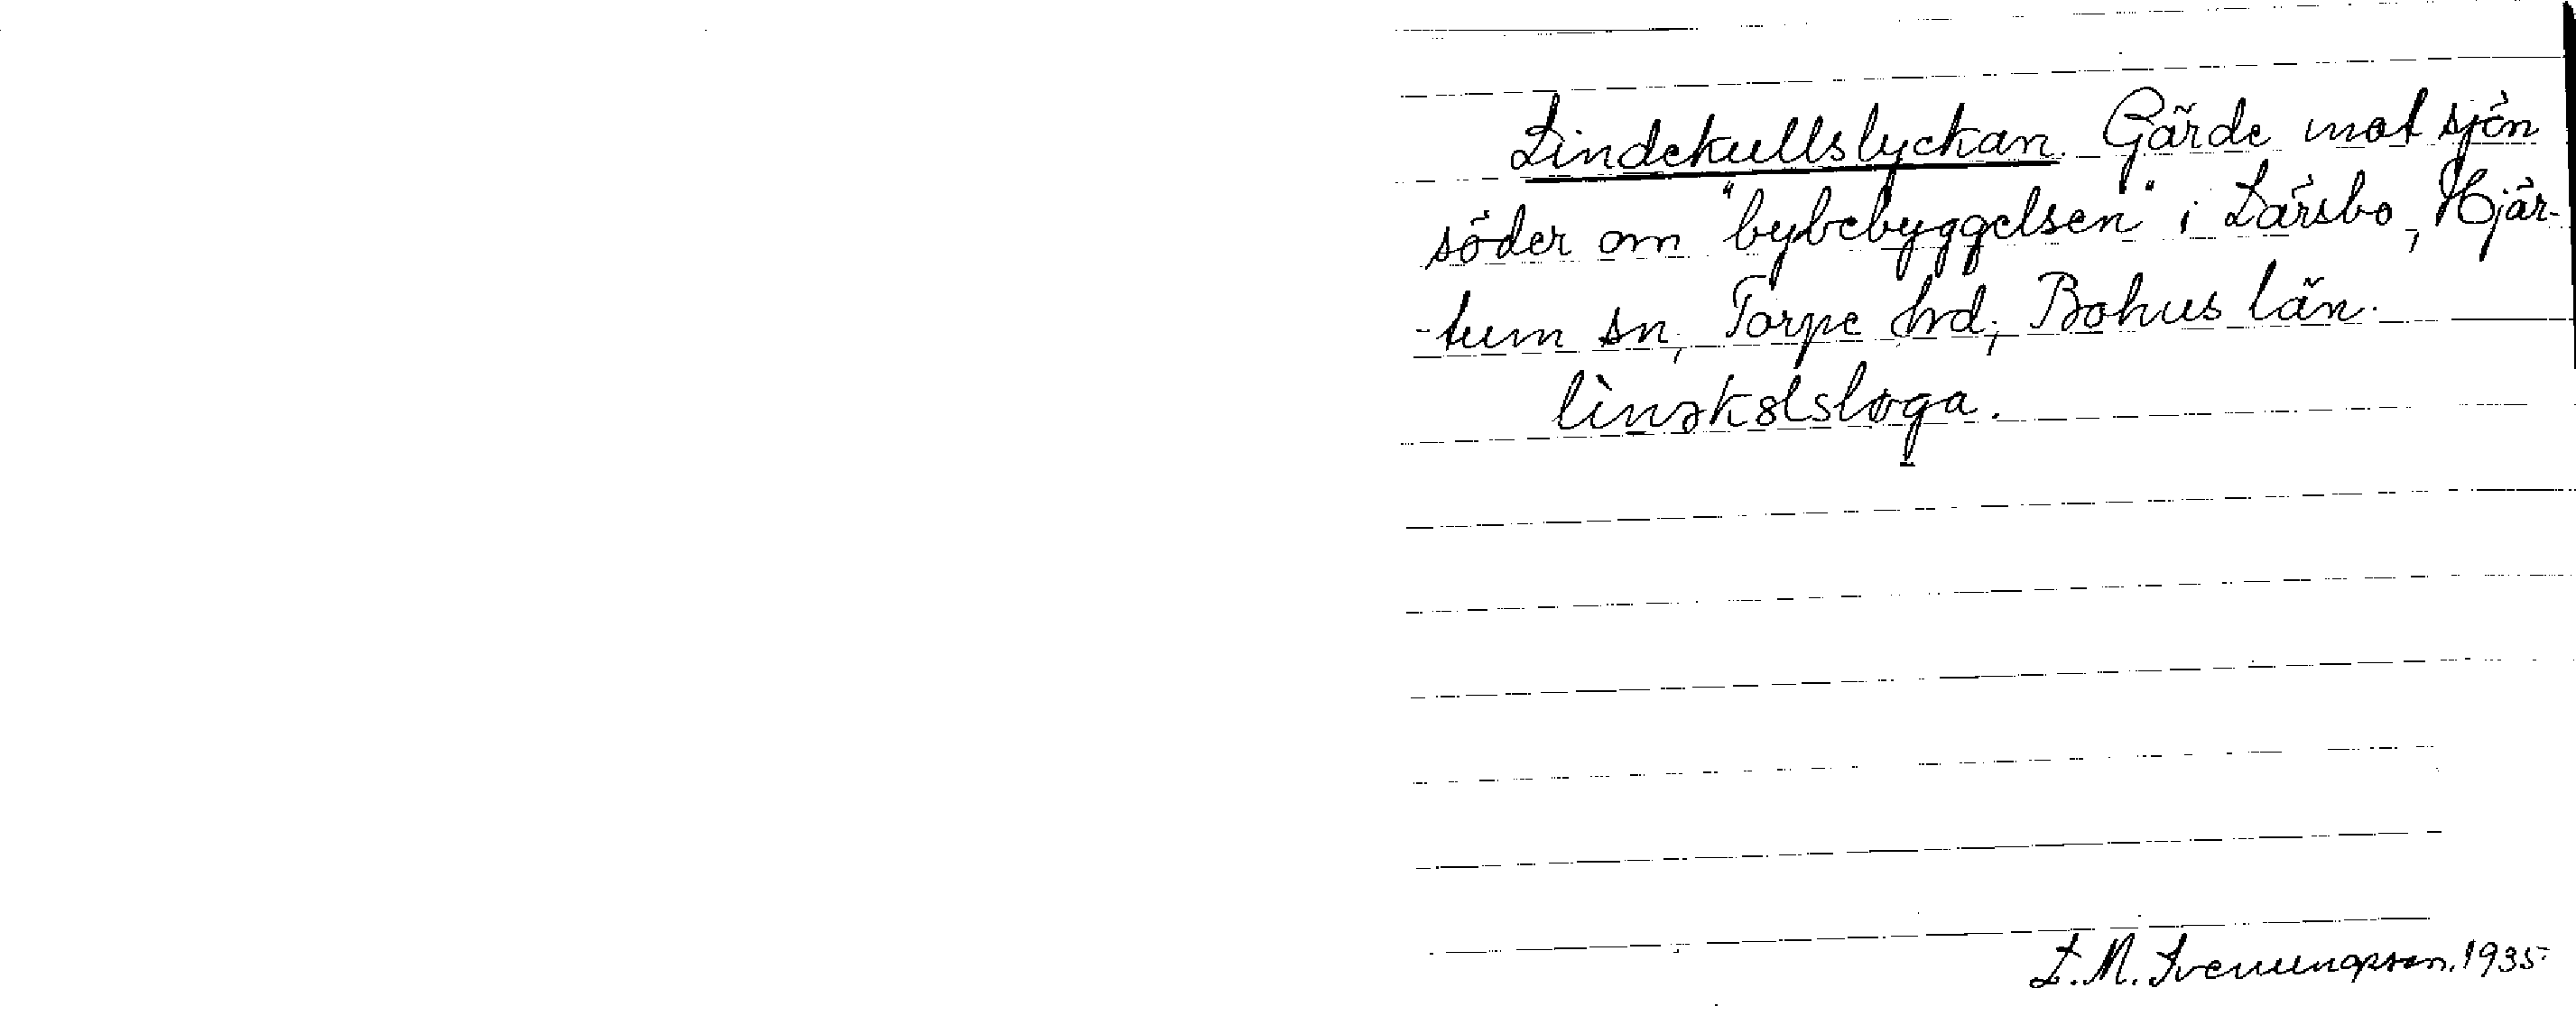 Lindekullslyckan. Gärde mot sjön
söder om "bybebyggelsen" i Lärsbo, Hjär-
-tum sn, Torpe hd, Bohus län.
lìnəkɵlsløga.
L. M. Svenungsson. 1935